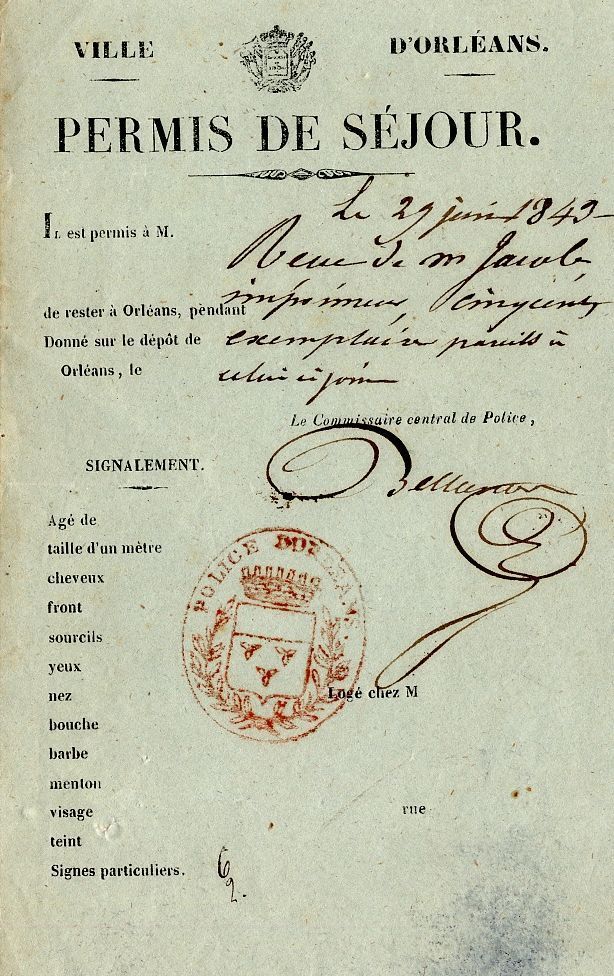 VILLE D'ORLÉANS.
PERMIS DE SÉJOUR.
Le 29 juin 1843
IL est permis à M.
Reçu de m Jacob,
imprimeur, cinq cents
exemplaires pareils à
celui ci joint
de rester à Orléans, pendant
Donné sur le dépôt de
Orléans, le
Le Commissaire central de Police,
SIGNALEMENT.
Agé de
taille d'un mètre
cheveux
front
sourcils
yeux
nez
bouche
barbe
menton
visage
teint
Signes particuliers.
POLICE D'ORLÉANS.
Logé chez M
rue
62.